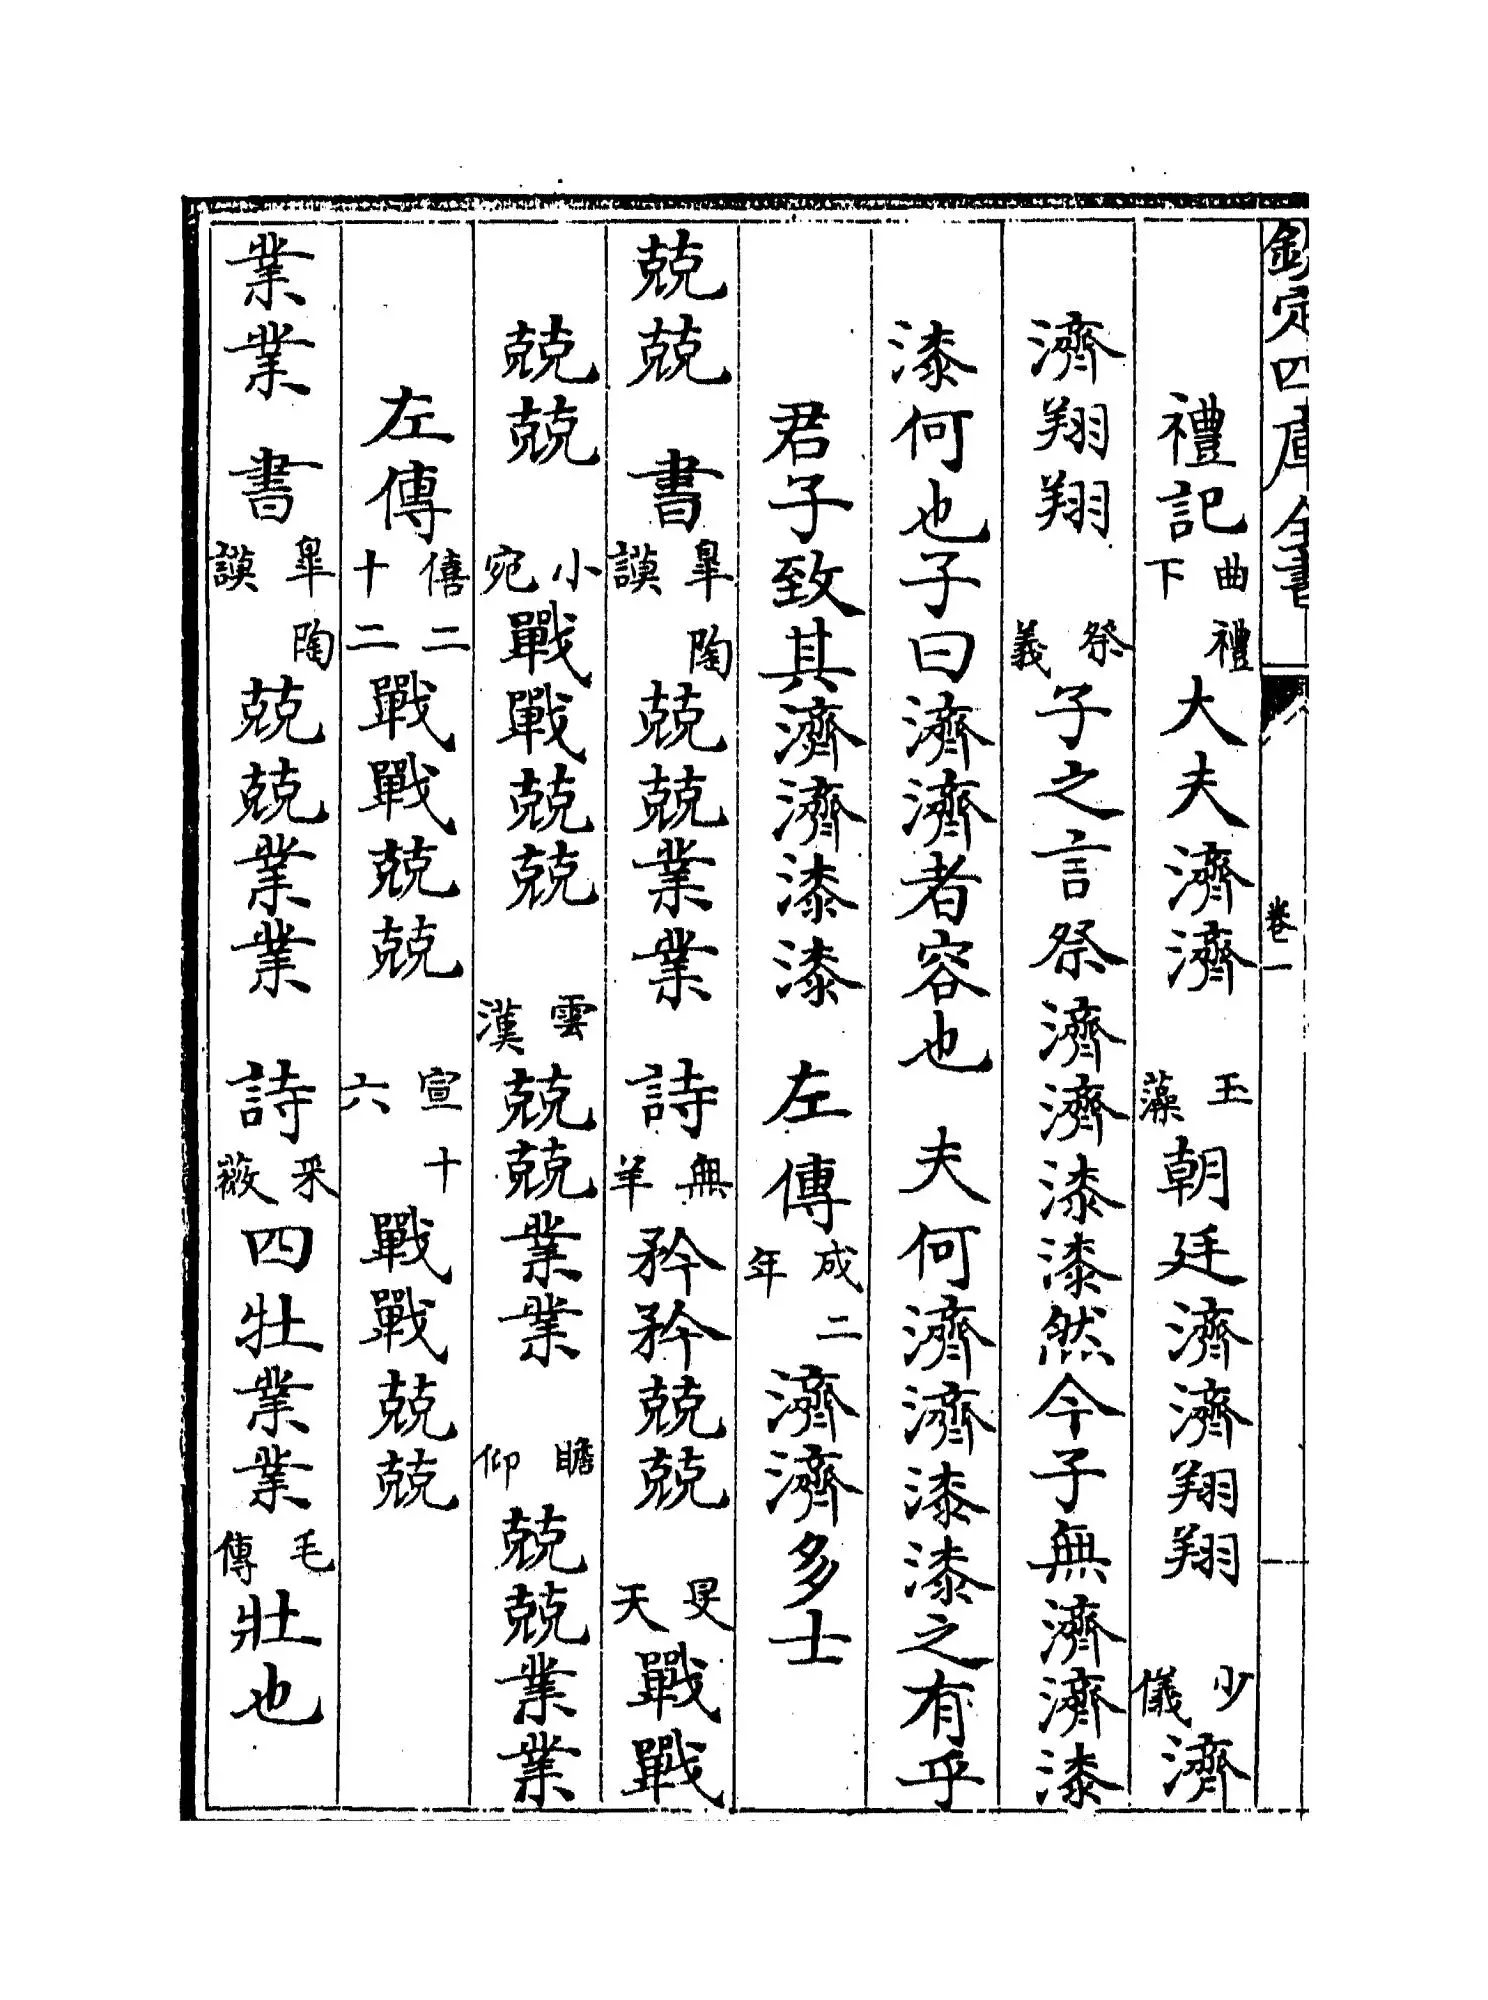 欽定四庫全書
卷一
禮記曲禮下大夫濟濟 玉藻朝廷濟濟翔翔 少儀濟
濟翔翔 祭義子之言祭濟濟漆漆然今子無濟濟漆
漆何也子曰濟濟者容也 夫何濟濟漆漆之有乎
君子致其濟濟漆漆 左傳成二年濟濟多士
兢兢 書皐陶謨兢兢業業 詩無羊矜矜兢兢 旻天戰戰
兢兢 小宛戰戰兢兢 雲漢兢兢業業 瞻仰兢兢業業
左傳僖二十二戰戰兢兢 宣十六戰戰兢兢
業業 書皐陶謨兢兢業業 詩采薇四牡業業毛傳壯也